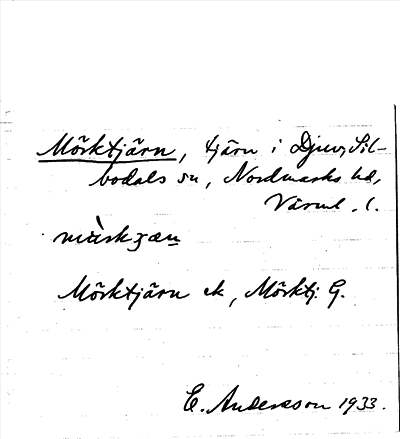 Mörktjärn, tjärn i Djuv, Sil-
bodals sn, Nordmarks hd,
Värml. l.
Mörktjärn ek, Mörktj. G.
E. Andersson 1933.